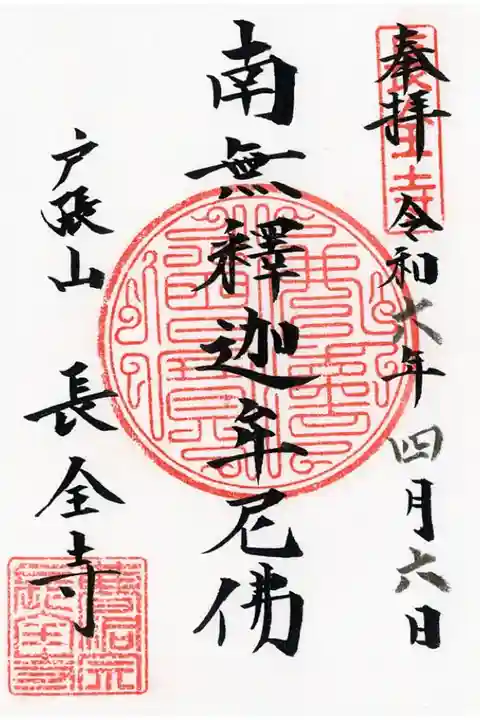 奉拝 令和六年四月六日
南無釋迦牟尼佛
戸張山 長全寺
長全寺